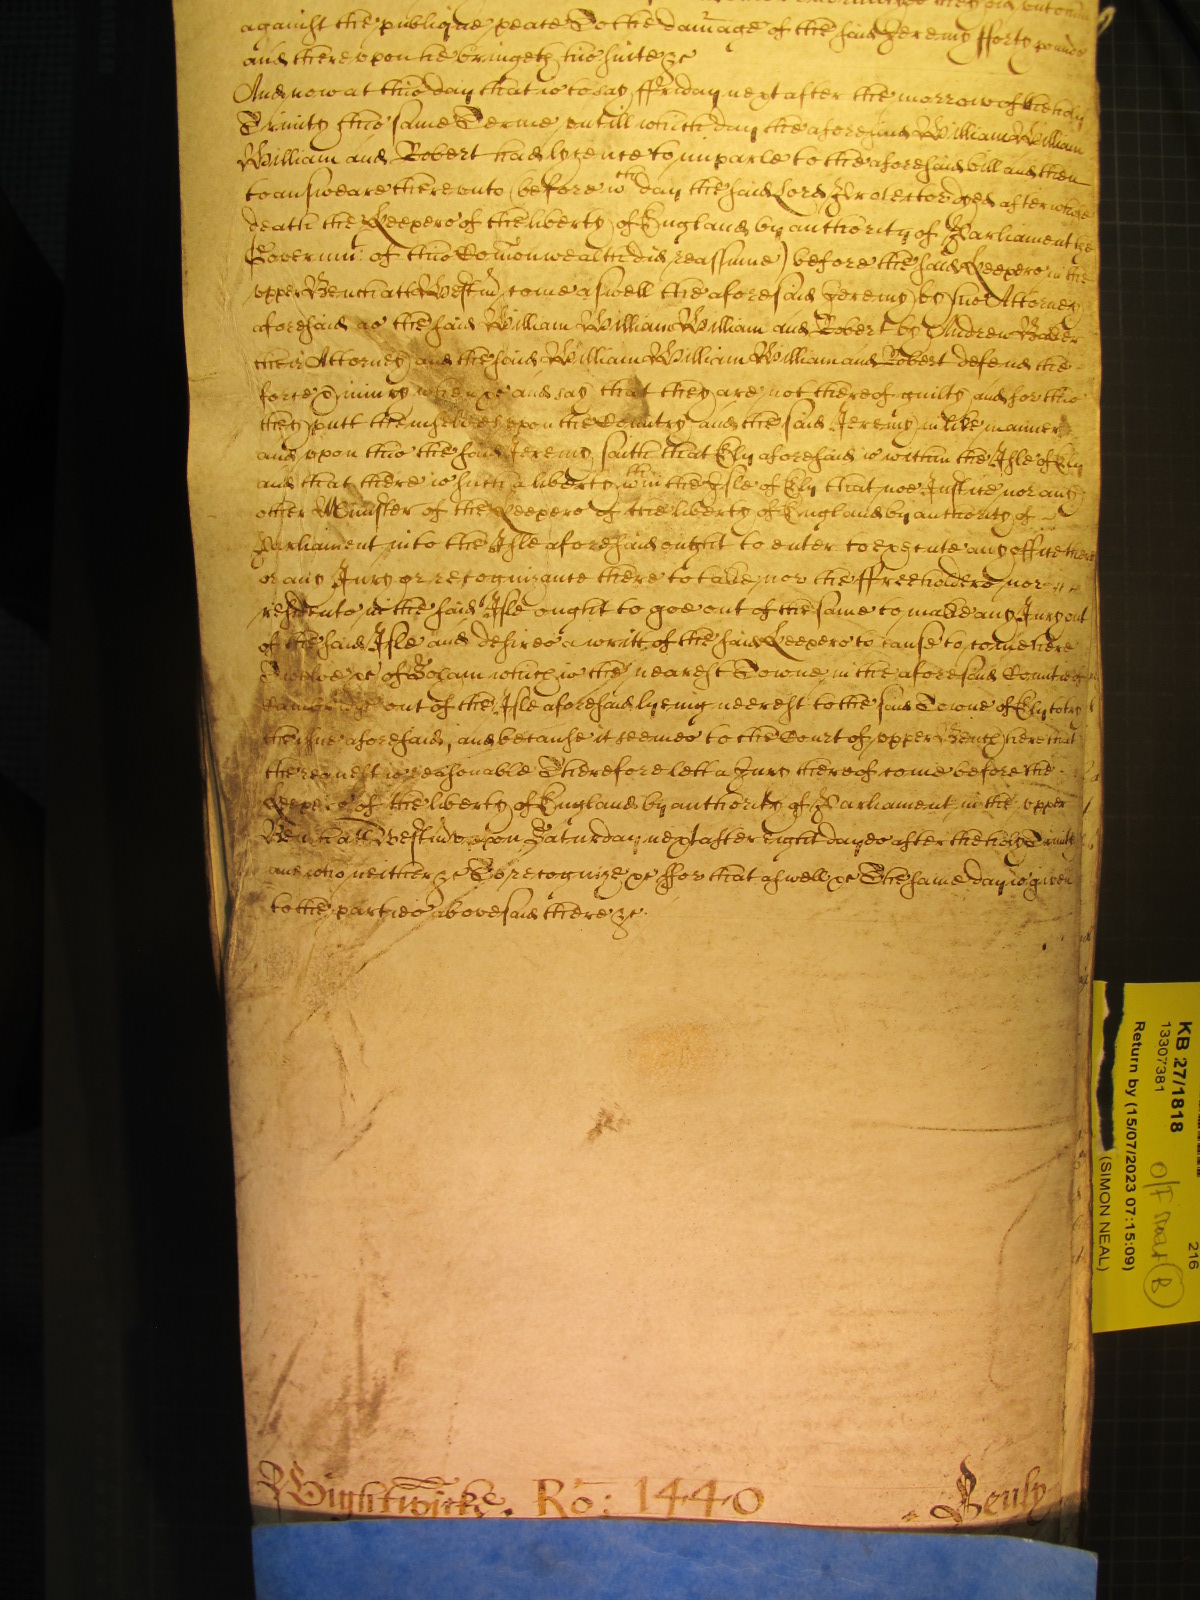 against the publique peace To the damage of the said Jeremy fforty pounds
and thereupon he bringeth his suite &c
And now at this day that is to say ffriday next after the morrow of the holy
Trinity this same Terme untill which day the aforesaid William William
William and Robert had lycence to imparle to the aforesaid bill and then
to answeare thereunto (before wch day the said Lord Protector dyed after whose
death the Keepers of the liberty of England by authority of Parliament the
Governmt: of this Comonwealth did reassume) before the said Keepers in the
upper Bench att Westmr come aswell the aforesaid Jeremy by his Attorney
aforesaid as the said William William William and Robert by Andrew Baker
their Attorney and the said William William William and Robert defend the
force & iniury when &c and say that they are not thereof guilty and for this
they putt themselves upon the Country and the said Jeremy in like manner
and upon this the said Jeremy saith that Ely aforesaid is within the Isle of Ely
and that there is such a liberty wthin the Isle of Ely that noe Justice nor any
other Minister of the Keepers of the liberty of England by authority of
Parliament into the Isle aforesaid ought to enter to execute any office there
or any Jury or recognizance there to take nor the ffreeholders nor
residents in the said Isle ought to goe out of the same to make any Jury out
of the said Isle and desires a writt of the said Keepers to cause to come here
Twelve &c of which is the nearest Towne in the aforesaid County of
out of the Isle aforesaid lyeing neerest to the said Towne of Ely to try
the issue aforesaid, and because it seemes to the Court of upper Bench here that
the request is reasonable Therefore lett a Jury thereof come before the
Keepers of the liberty of England by authority of Parliament in the upper
Bench att Westmr upon Saturday next after eight dayes after the holy Trinity
and who neither &c To recognize &c ffor that aswell &c The same day is given
to the parties abovesaid there &c.
Wightwicke. Ro: 1440
KB 27/1818
13307381
Return by (15/07/2023 07:15:09)
(SIMON NEAL)
216
B